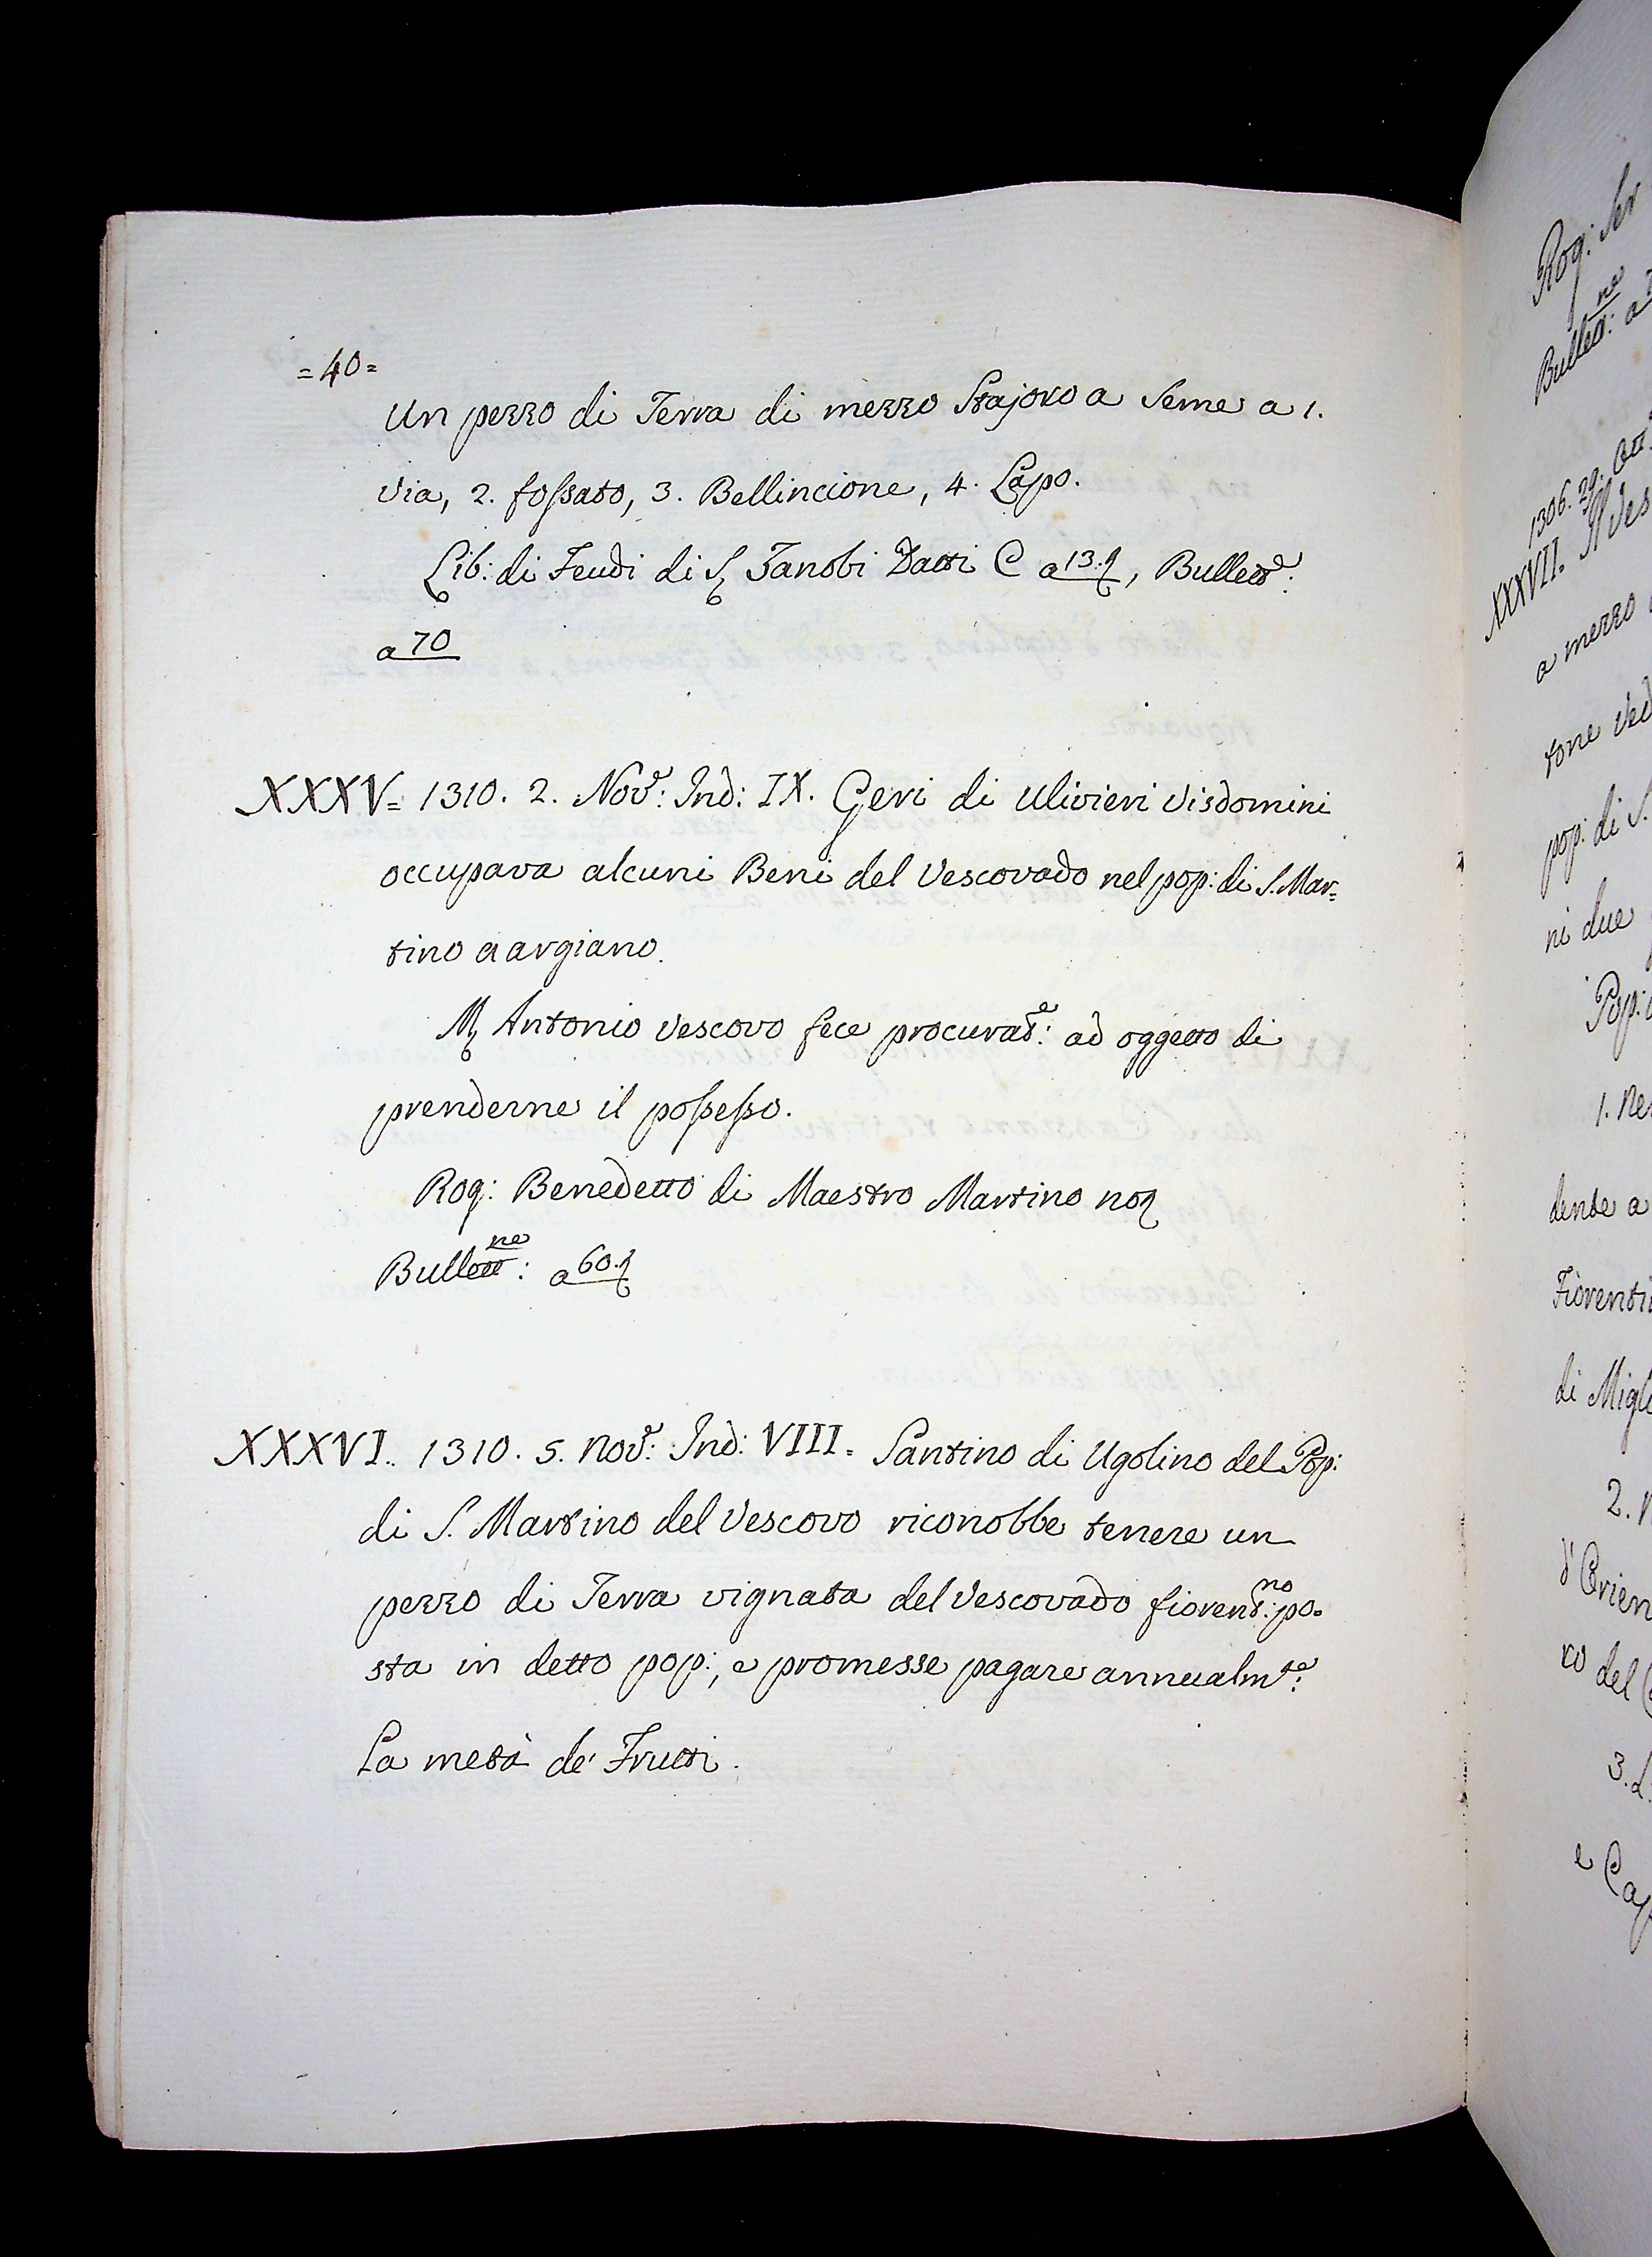 =40=
Un pezzo di Terra di mezzo Stajoro a Seme a 1.
via, 2. fossato, 3. Bellincione, 4. Lapo.
Lib: di Feudi di S. Zanobi Datti C a 13.t, Bullett.e:
a 70
XXXV= 1310. 2. Nov.e: Ind: IX. Geri di Ulivieri Visdomini
occupava alcuni Beni del Vescovado nel pop: di S. Mar=
tino a argiano.
M. Antonio Vescovo fece procurat.e: ad oggetto di
prenderne il possesso.
Rog: Benedetto di Maestro Martino not
Bullett.ne: a 60.t
XXXVI. 1310. 5. Nov.e: Ind: VIII= Santino di Ugolino del Pop:
di S. Martino del Vescovo riconobbe tenere un
pezzo di Terra vignata del Vescovado fiorent.no: po=
sta in detto pop:, e promesse pagare annualm.te:
La metà de' Frutti.
Rog: Ser
Bullett.ne: a
1306. 29. Ott
XXXVII. Il Ves
a mezzo
tone Ved
pop: di S.
ni due
Pop:
1. Ne
dente a
Fiorenti
di Migli
2. N
d'Orien
ro del C
3. L
e Cap